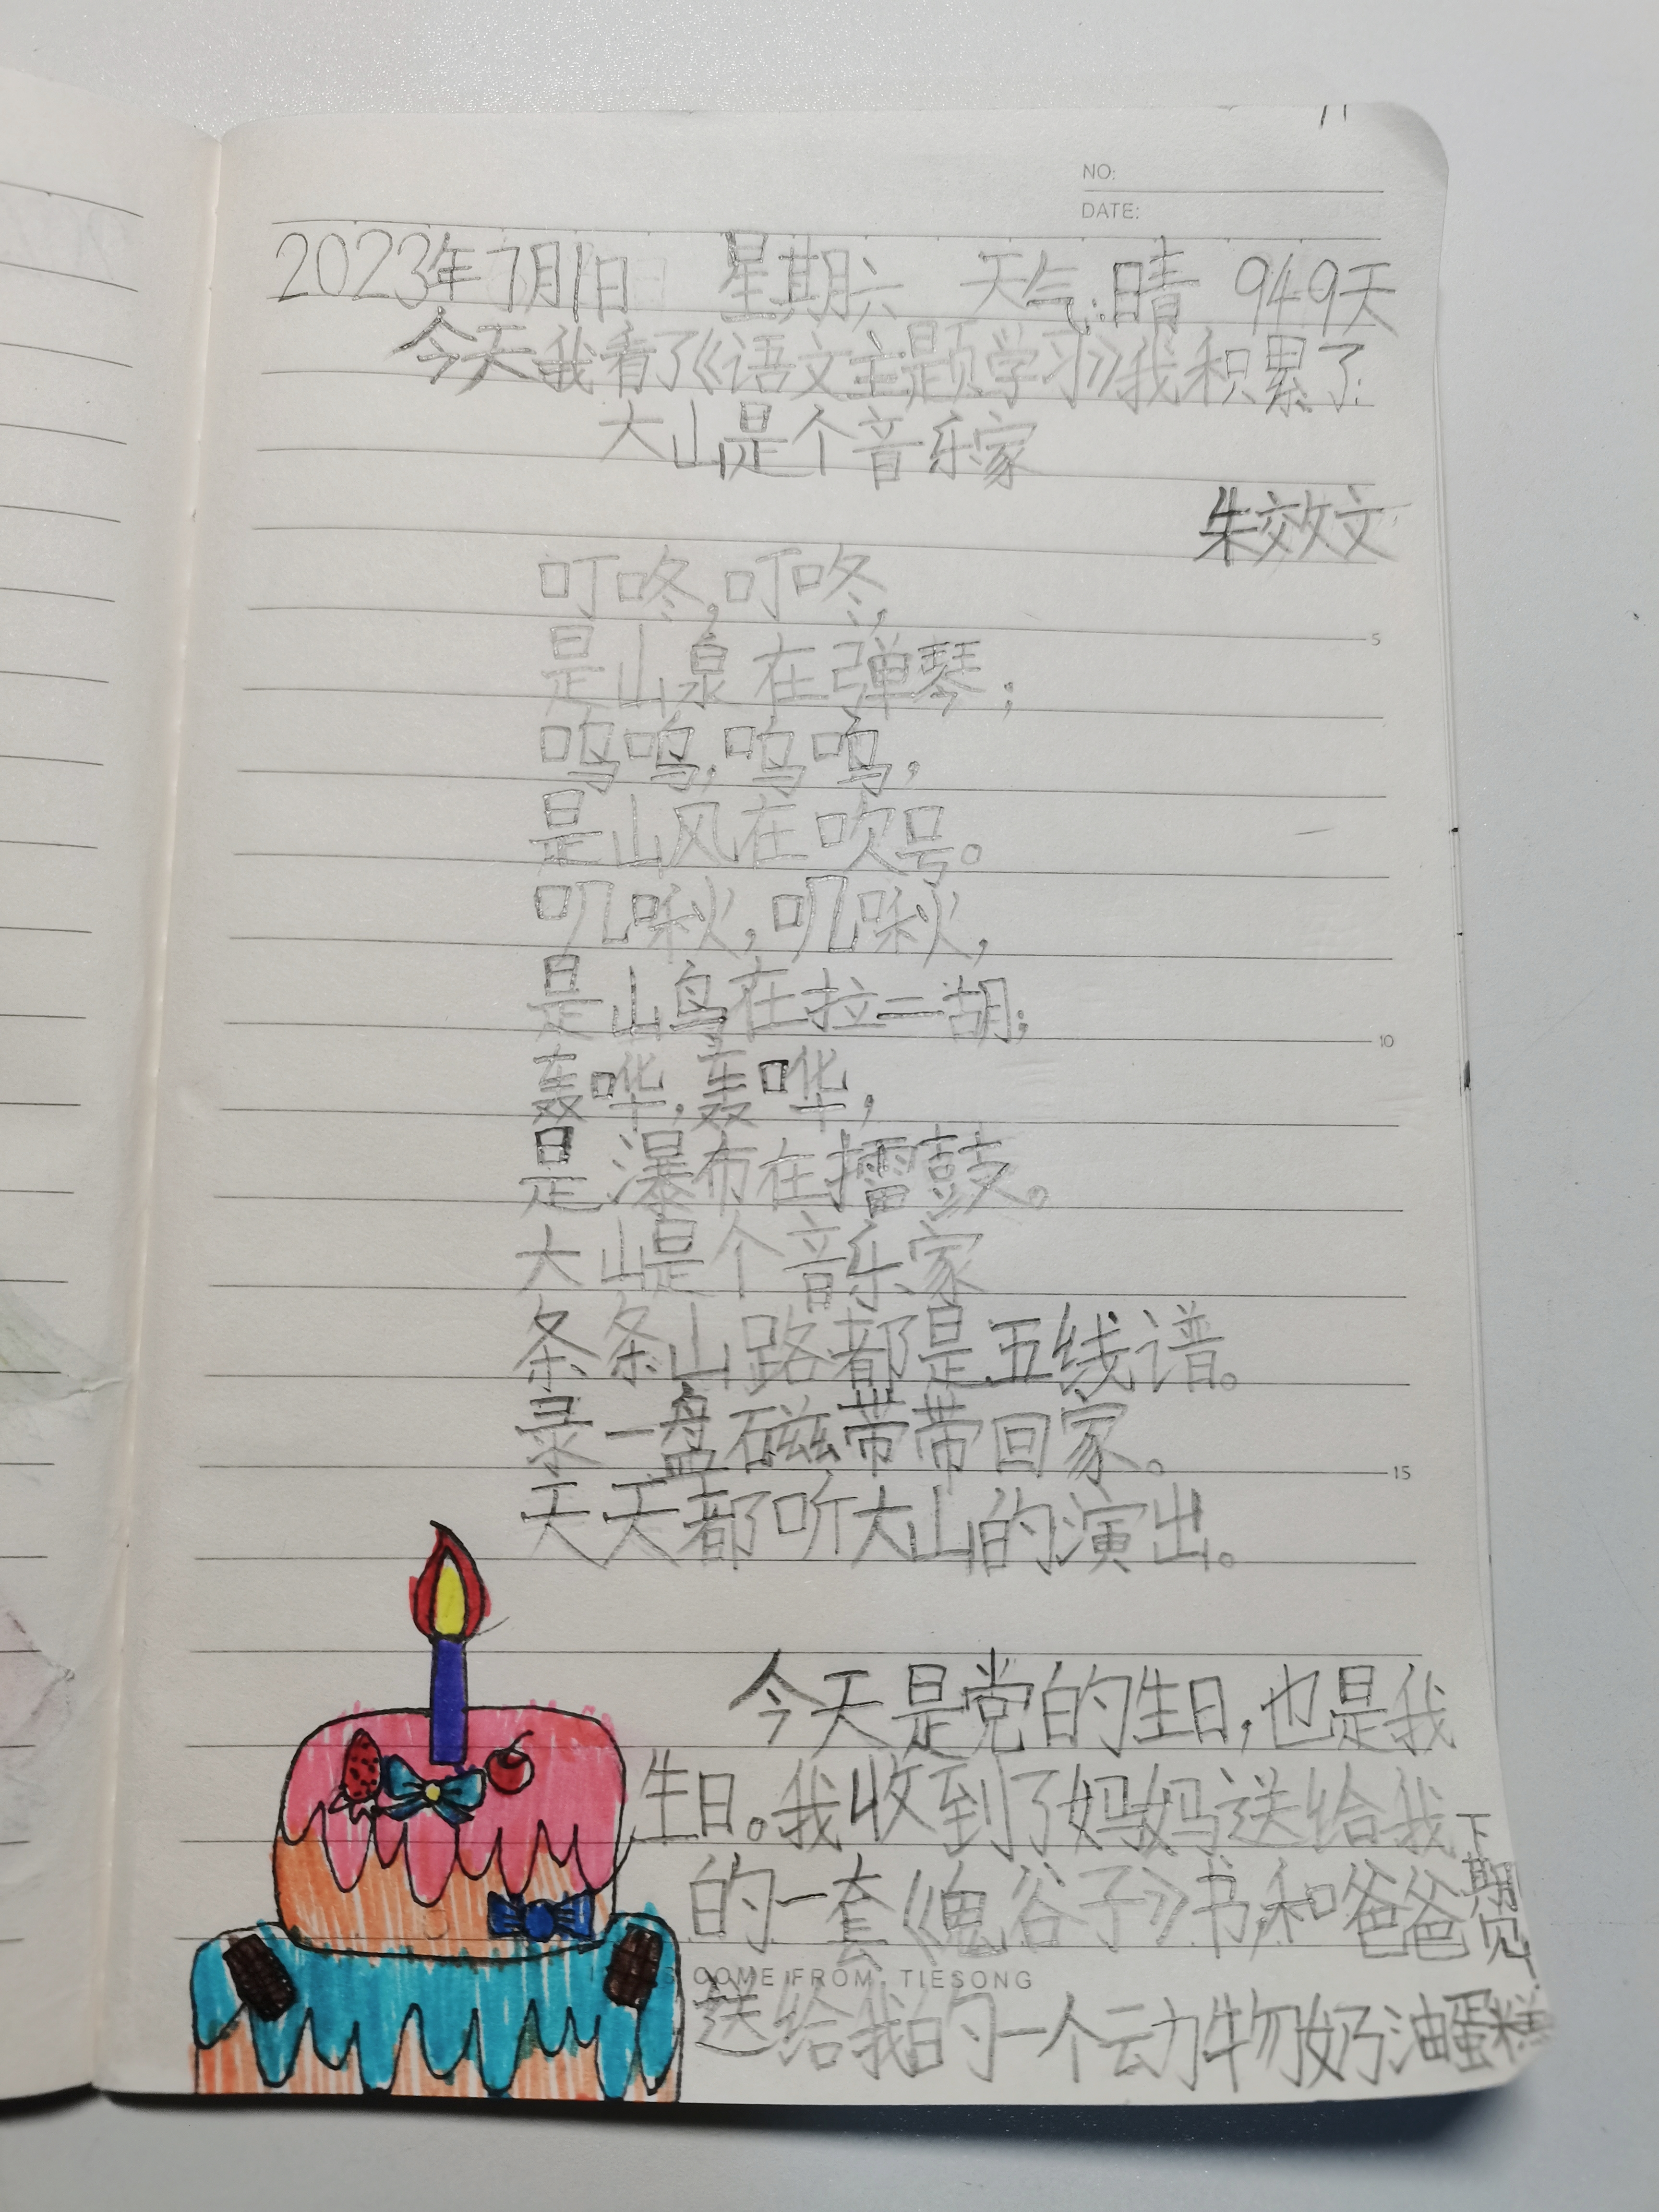 NO:
DATE:
2023年7月1日 星期六 天气:晴 949天
今天我看了《语文主题学习》我积累了
大山是个音乐家
朱效文
叮咚,叮咚,
是山泉在弹琴;
呜呜,呜呜,
是山风在吹号。
叽啾,叽啾,
是山鸟在拉二胡;
轰哗,轰哗,
是瀑布在擂鼓。
大山是个音乐家
条条山路都是五线谱。
录一盘磁带带回家。
天天都听大山的演出。
今天是党的生日,也是我
生日。我收到了妈妈送给我
的一套《鬼谷子》书,和爸爸
送给我的一个动物奶油蛋糕
下期见
5
10
15
COME FROM TIESONG